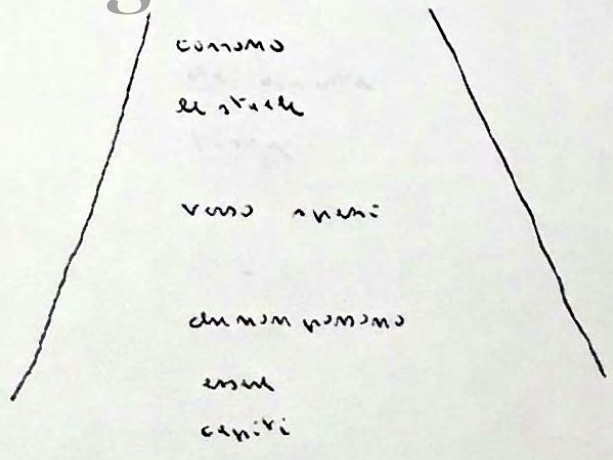 corrono
le strade
verso spazi
che non possono
essere
capiti